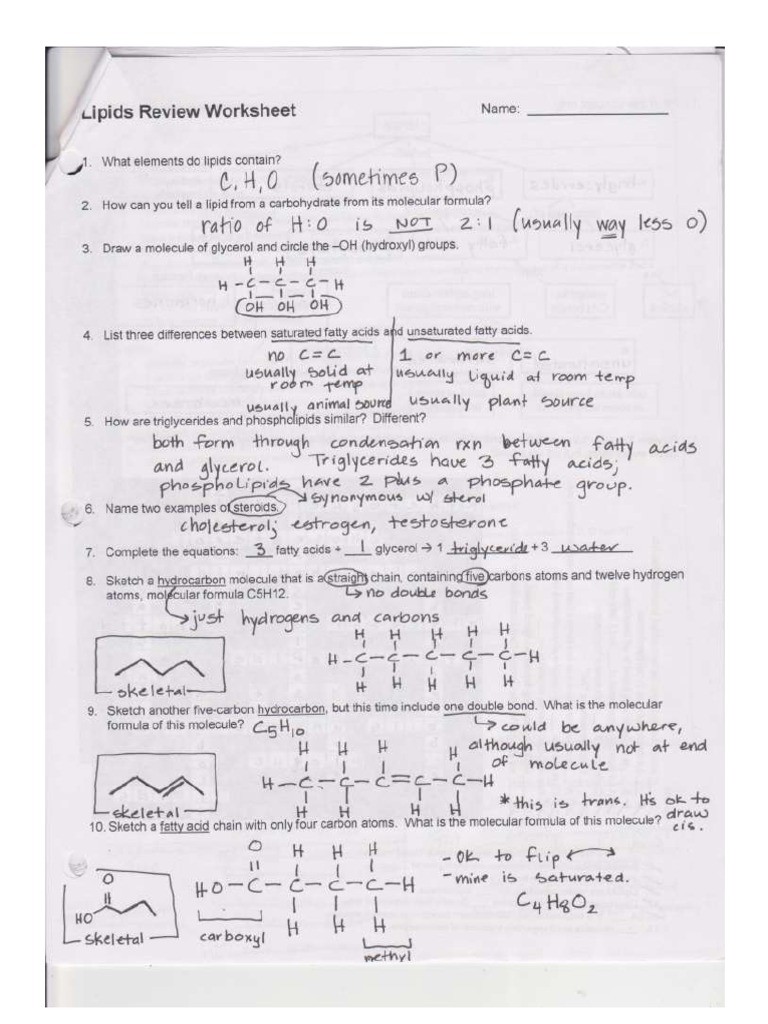 Lipids Review Worksheet Name:
1. What elements do lipids contain?
C, H, O (sometimes P)
2. How can you tell a lipid from a carbohydrate from its molecular formula?
ratio of H:O is NOT 2:1 (usually way less O)
3. Draw a molecule of glycerol and circle the –OH (hydroxyl) groups.
H H H
H - C - C - C - H
OH OH OH
4. List three differences between saturated fatty acids and unsaturated fatty acids.
no C=C 1 or more C=C
usually solid at room temp usually liquid at room temp
usually animal source usually plant source
5. How are triglycerides and phospholipids similar? Different?
both form through condensation rxn between fatty acids
and glycerol. Triglycerides have 3 fatty acids;
phospholipids have 2 plus a phosphate group.
→ synonymous w/ sterol
6. Name two examples of steroids.
cholesterol; estrogen, testosterone
7. Complete the equations: 3 fatty acids + 1 glycerol → 1 triglyceride + 3 water
8. Sketch a hydrocarbon molecule that is a straight chain, containing five carbons atoms and twelve hydrogen
atoms, molecular formula C5H12. → no double bonds
→ just hydrogens and carbons
H H H H H
H - C - C - C - C - C - H
H H H H H
skeletal
9. Sketch another five-carbon hydrocarbon, but this time include one double bond. What is the molecular
formula of this molecule? C5H10 → could be anywhere,
although usually not at end
of molecule
H H H H
H - C - C - C = C - C - H
H H H H
skeletal
* this is trans. It's ok to
draw
cis.
10. Sketch a fatty acid chain with only four carbon atoms. What is the molecular formula of this molecule?
O H H H
HO - C - C - C - C - H
H H H
- OK to flip ↔
- mine is saturated.
C4H8O2
O
HO
skeletal
carboxyl
methyl